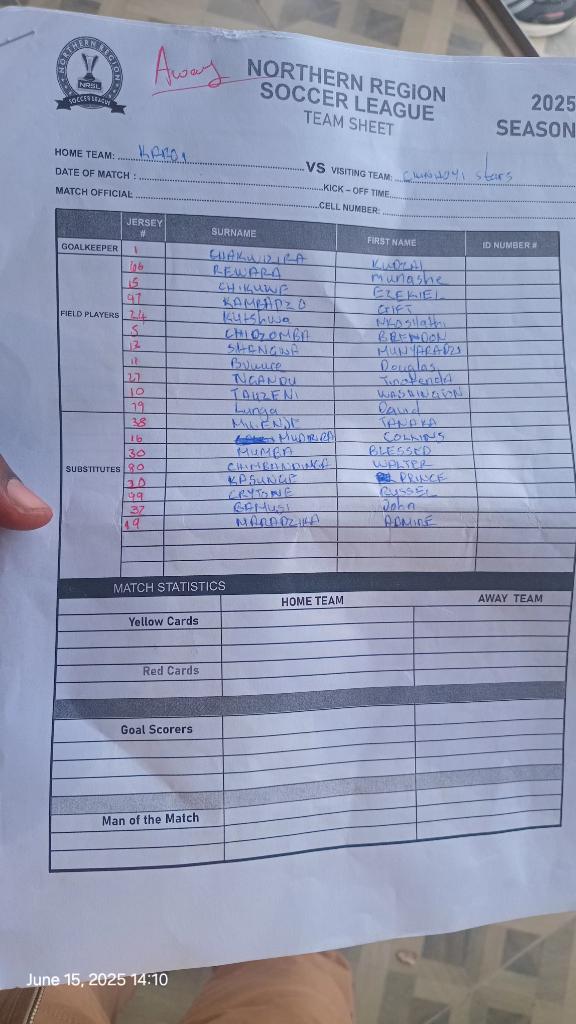 NORTHERN REGION
NRSL
SOCCER LEAGUE
Away
NORTHERN REGION
SOCCER LEAGUE
TEAM SHEET
2025
SEASON
HOME TEAM: VS VISITING TEAM: CHINHOYI stars
DATE OF MATCH: KICK - OFF TIME
MATCH OFFICIAL CELL NUMBER:
JERSEY # SURNAME FIRST NAME ID NUMBER #
GOALKEEPER 1 CHAKUDZIRA KUDZAI
REWARA Munashe
15 CHIKUWE EZEKIEL
KAMBADZO GIFT
FIELD PLAYERS 24 Kutshwa Nkosilathi
5 CHIDZOMBA BRENDON
SHANGWA MUNYARADZI
11 Douglas
27 NGANDU Tinotenda
10 TAUZENI WASHINGTON
19 Lunga David
38 TANAKA
16 MUDZIRA COLLINS
30 MUMBA BLESSED
SUBSTITUTES 80 CHIMBANDINGA WALTER
KASUNGE PRINCE
99 CRYTONE RUSSEL
37 GAMUSI John
19 MARADZIKA ADMIRE
MATCH STATISTICS
HOME TEAM AWAY TEAM
Yellow Cards
Red Cards
Goal Scorers
Man of the Match
June 15, 2025 14:10